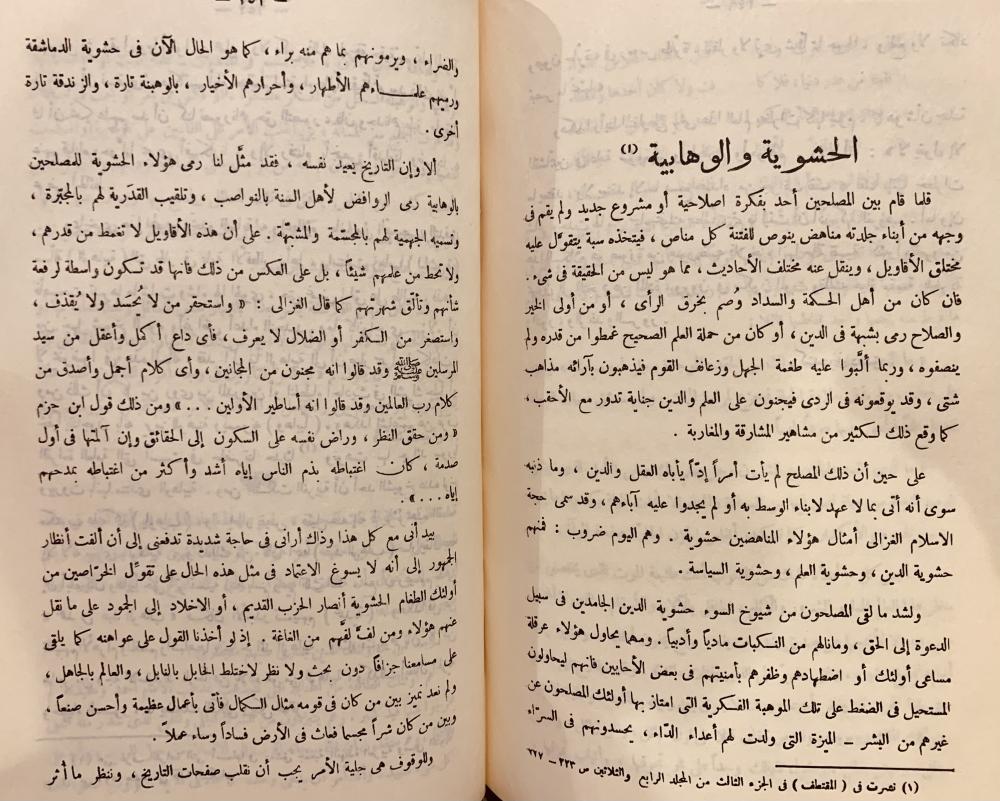 الحشوية والوهابية (١)
قلما قام بين المصلحين أحد بفكرة اصلاحية أو مشروع جديد ولم يقم فى
وجهه من أبناء جلدته مناهض ينوص للفتنة كل مناص ، فيتخذه سبة يتقوّل عليه
مختلق الأقاويل ، وينقل عنه مختلف الأحاديث ، مما هو ليس من الحقيقة فى شىء .
فان كان من أهل الحكمة والسداد وُصم بخرق الرأى ، أو من أولى الخير
والصلاح رمى بشبهة فى الدين ، أو كان من حملة العلم الصحيح غمطوا من قدره ولم
ينصفوه ، وربما ألَّبوا عليه طغمة الجهل وزعانف القوم فيذهبون بآرائه مذاهب
شتى ، وقد يوقعونه فى الردى فيجنون على العلم والدين جناية تدور مع الأحقب ،
كما وقع ذلك لكثير من مشاهير المشارقة والمغاربة .
على حين أن ذلك المصلح لم يأت أمراً إدّاً يأباه العقل والدين ، وما ذنبه
سوى أنه أتى بما لا عهد لابناء الوسط به أو لم يجدوا عليه آباءهم ، وقد سمى حجة
الاسلام الغزالى أمثال هؤلاء المناهضين حشوية . وهم اليوم ضروب : فمنهم
حشوية الدين ، وحشوية العلم ، وحشوية السياسة .
ولشد ما لقى المصلحون من شيوخ السوء حشوية الدين الجامدين فى سبيل
الدعوة إلى الحق ، ومانالهم من النكبات مادياً وأدبياً . ومهما يحاول هؤلاء عرقلة
مساعى أولئك أو اضطهادهم وظفرهم بأمنيتهم فى بعض الأحايين فانهم ليحاولون
المستحيل فى الضغط على تلك الموهبة الفكرية التى امتاز بها أولئك المصلحون عن
غيرهم من البشر – الميزة التى ولدت لهم أعداء الدّاء ، يحسدونهم فى السرّاء
(١) نصرت فى ( المقتطف ) فى الجزء الثالث من المجلد الرابع والثلاثين ص ٢٢٣ – ٢٢٧
والضراء ، ويرمونهم بما هم منه براء ، كما هو الحال الآن فى حشوية الدماشقة
ورميهم علماءهم الأطهار ، وأحرارهم الأخيار ، بالوهبنة تارة ، والزندقة تارة
أخرى .
ألا وإن التاريخ يعيد نفسه ، فقد مثَّل لنا رمى هؤلاء الحشوية للمصلحين
بالوهابية رمى الروافض لأهل السنة بالنواصب ، وتلقيب القدَرية لهم بالمجبّرة ،
وتسميه الجهمية لهم بالمجسّمة والمشبّهة . على أن هذه الأقاويل لا تغمط من قدرهم ،
ولا تحط من علمهم شيئاً ، بل على العكس من ذلك فانها قد تكون واسطة لرفعة
شأنهم وتألّق شهرتهم كما قال الغزالى : « واستحقر من لا يُحسد ولا يُقذف ،
واستصغر من الكفر أو الضلال لا يعرف ، فأى داع أكمل وأعقل من سيد
المرسلين ﷺ وقد قالوا انه مجنون من المجانين ، وأى كلام أجمل وأصدق من
كلام رب العالمين وقد قالوا انه أساطير الأولين . . . » ومن ذلك قول ابن حزم
« ومن حقق النظر ، وراض نفسه على السكون إلى الحقائق وإن آلمتها فى أول
صدمة ، كان اغتباطه بذم الناس إياه أشد وأكثر من اغتباطه بمدحهم
إياه . . . » .
بيد أنى مع كل هذا وذاك أرانى فى حاجة شديدة تدفعنى إلى أن ألفت أنظار
الجمهور إلى أنه لا يسوغ الاعتماد فى مثل هذه الحال على تقوّل الخرّاصين من
أولئك الطغام الحشوية أنصار الحزب القديم ، أو الاخلاد إلى الجمود على ما نقل
عنهم هؤلاء ومن لفَّ لفَّهم من الغاغة . إذ لو أخذنا القول على عواهنه كما يلقى
على مسامعنا جزافاً دون بحث ولا نظر لاختلط الحابل بالنابل ، والعالم بالجاهل ،
ولم نعد نميز بين من كان فى قومه مثال الكمال فأتى بأعمال عظيمة وأحسن صنعاً ،
وبين من كان شراً مجسما فعاث فى الأرض فساداً وساء عملاً .
وللوقوف على جلية الأمر يجب أن نقلب صفحات التاريخ ، وننظر ما أثر